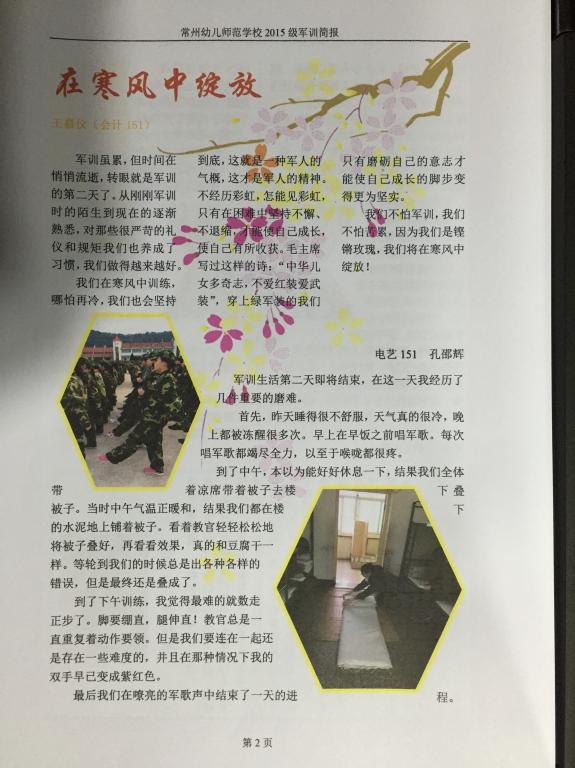 常州幼儿师范学校 2015 级军训简报
在寒风中绽放
王嘉仪（会计 151）
军训虽累，但时间在
悄悄流逝，转眼就是军训
的第二天了。从刚刚军训
时的陌生到现在的逐渐
熟悉，对那些很严苛的礼
仪和规矩我们也养成了
习惯，我们做得越来越好。
我们在寒风中训练，
哪怕再冷，我们也会坚持
到底，这就是一种军人的
气概，这才是军人的精神。
不经历彩虹，怎能见彩虹，
只有在困难中坚持不懈、
不退缩，才能使自己成长，
使自己有所收获。毛主席
写过这样的诗：“中华儿
女多奇志，不爱红装爱武
装”，穿上绿军装的我们
只有磨砺自己的意志才
能使自己成长的脚步变
得更为坚实。
我们不怕军训，我们
不怕苦累，因为我们是铿
锵玫瑰，我们将在寒风中
绽放！
电艺 151 孔邵辉
军训生活第二天即将结束，在这一天我经历了
几件重要的磨难。
首先，昨天睡得很不舒服，天气真的很冷，晚
上都被冻醒很多次。早上在早饭之前唱军歌。每次
唱军歌都竭尽全力，以至于喉咙都很疼。
到了中午，本以为能好好休息一下，结果我们全体
带着凉席带着被子去楼下叠
被子。当时中午气温正暖和，结果我们都在楼下
的水泥地上铺着被子。看着教官轻轻松松地
将被子叠好，再看看效果，真的和豆腐干一
样。等轮到我们的时候总是出各种各样的
错误，但是最终还是叠成了。
到了下午训练，我觉得最难的就数走
正步了。脚要绷直，腿伸直！教官总是一
直重复着动作要领。但是我们要连在一起还
是存在一些难度的，并且在那种情况下我的
双手早已变成紫红色。
最后我们在嘹亮的军歌声中结束了一天的进程。
第 2 页